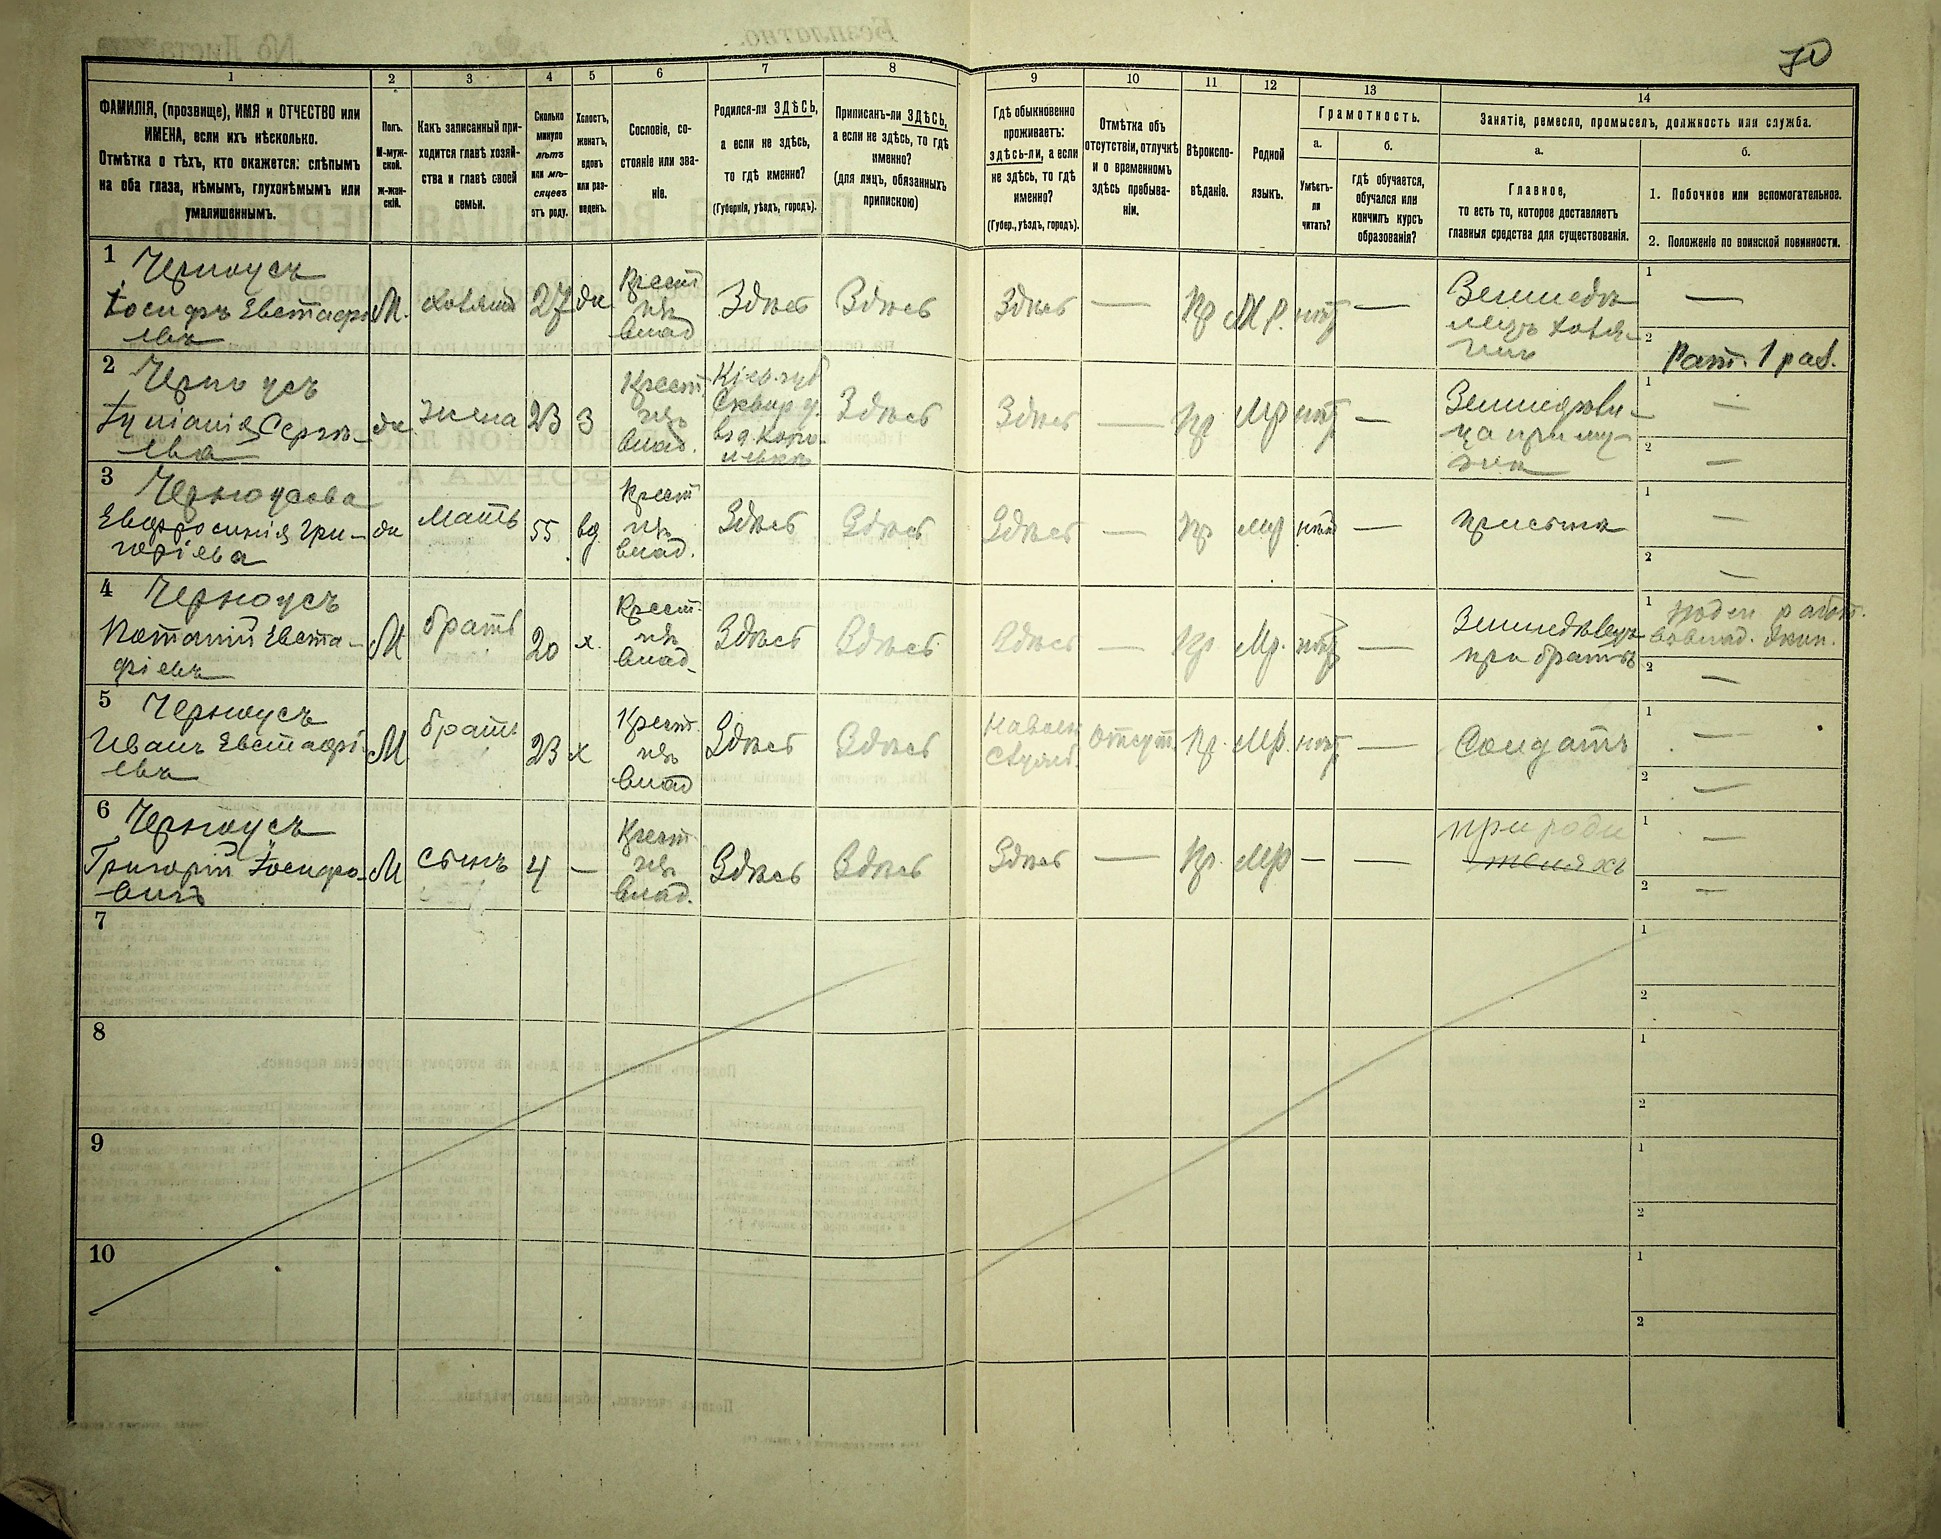 70
1 2 3 4 5 6 7 8 9 10 11 12 13 14
ФАМИЛІЯ, (прозвище), ИМЯ и ОТЧЕСТВО или
ИМЕНА, если ихъ нѣсколько.
Отмѣтка о тѣхъ, кто окажется: слѣпымъ
на оба глаза, нѣмымъ, глухонѣмымъ или
умалишеннымъ.
Полъ.
М-муж-
ской.
Ж-жен-
скій.
Какъ записанный при-
ходится главѣ хозяй-
ства и главѣ своей
семьи.
Сколько
минуло
лѣтъ
или мѣ-
сяцевъ
отъ роду.
Холостъ,
женатъ,
вдовъ
или раз-
веденъ.
Сословіе, со-
стояніе или зва-
ніе.
Родился-ли ЗДѢСЬ,
а если не здѣсь,
то гдѣ именно?
(Губернія, уѣздъ, городъ).
Приписанъ-ли ЗДѢСЬ,
а если не здѣсь, то гдѣ
именно?
(для лицъ, обязанныхъ
припискою)
Гдѣ обыкновенно
проживаетъ:
здѣсь-ли, а если
не здѣсь, то гдѣ
именно?
(Губер., уѣздъ, городъ).
Отмѣтка объ
отсутствіи, отлучкѣ
и о временномъ
здѣсь пребыва-
ніи.
Вѣроиспо-
вѣданіе.
Родной
языкъ.
Грамотность.
а.
Умѣетъ-
ли
читать?
б.
гдѣ обучается,
обучался или
кончилъ курсъ
образованія?
Занятіе, ремесло, промыселъ, должность или служба.
а.
Главное,
то есть то, которое доставляетъ
главныя средства для существованія.
б.
1. Побочное или вспомогательное.
2. Положеніе по воинской повинности.
1
Черноусъ
Іосифъ Евстафі
евъ
М. хозяинъ 27 Крест
изъ
влад
Здѣсь Здѣсь Здѣсь — Пр М.Р. нѣтъ —
Земледѣ
лецъ хозя-
инъ
1 —
2 Рат. 1 раз.
2
Черноусъ
Сергѣ-
ева
жена 23 З
Крест.
изъ
влад.
Кіев. губ
Сквир у.
Здѣсь Здѣсь — Пр Мр нѣтъ —
Земледѣли-
ца при му-
жѣ
1 —
2 —
3
Черноусова
Евфросинія Гри-
горіева
мать 55 вд.
Крест
изъ
влад.
Здѣсь Здѣсь Здѣсь — Пр мр нѣтъ —
при сынѣ
1 —
2 —
4
Черноусъ
Потапій Евста-
фіевъ
М братъ 20 х.
Крест.
изъ
влад.
Здѣсь Здѣсь Здѣсь — Пр. Мр. нѣтъ —
Земледѣлецъ
при братѣ
1 поден работ.
во влад. экон.
2 —
5
Черноусъ
Иванъ Евстафі
евъ
М братъ 23 х
Крест.
изъ
влад
Здѣсь Здѣсь
отсут. Пр. Мр. нѣтъ —
Солдатъ
1 —
2 —
6
Черноусъ
Григорій Іосифо-
вичъ
М сынъ 4 —
Крест.
изъ
влад.
Здѣсь Здѣсь Здѣсь — Пр. Мр — —
при роди
теляхъ
1 —
2 —
7
1
2
8
1
2
9
1
2
10
1
2